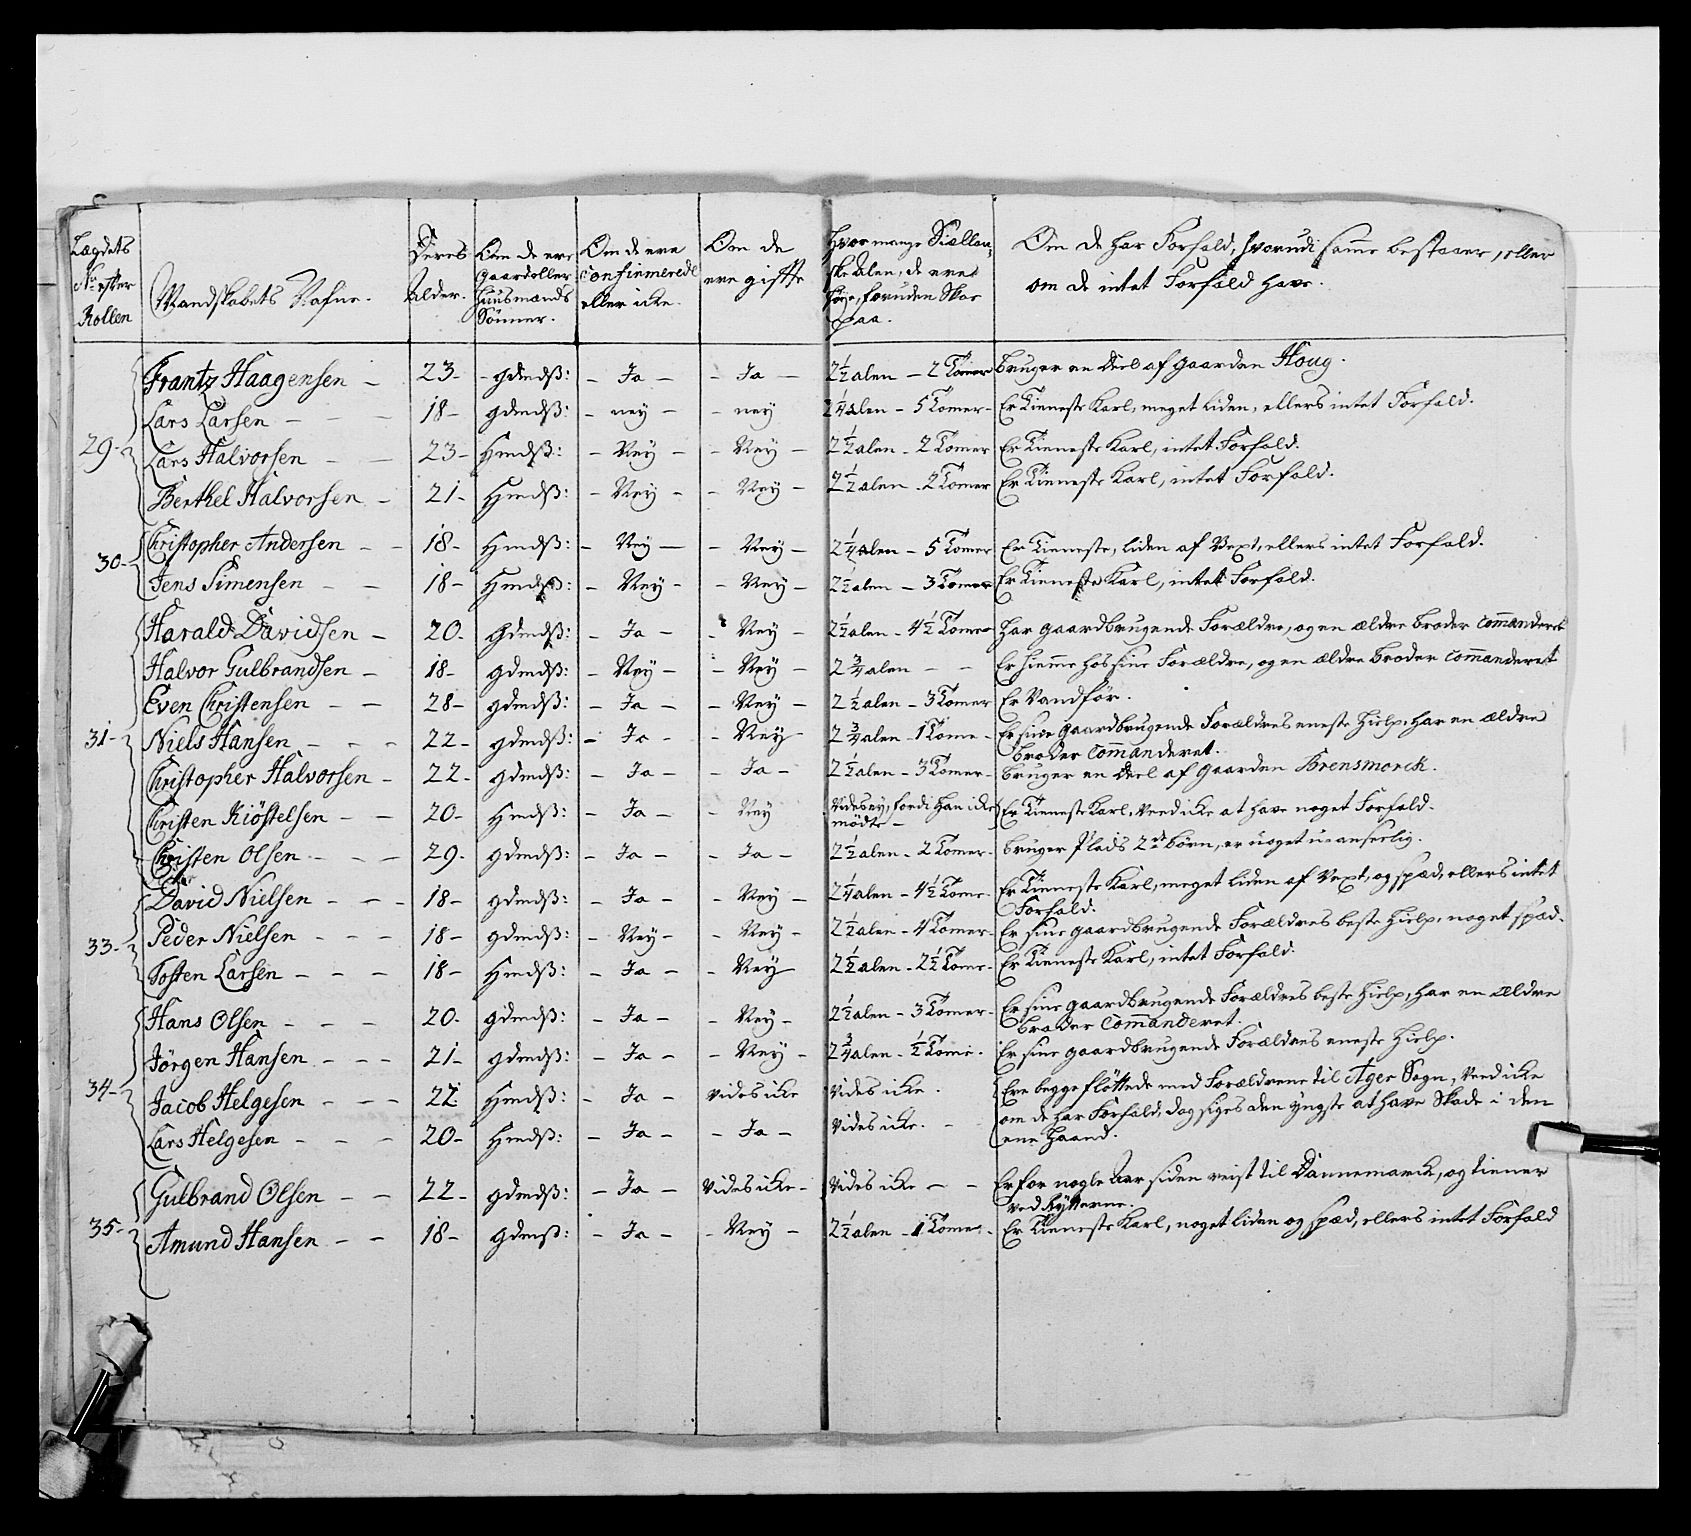 Lægdets N:o efter Rollen | Mandskabets Nafne. | Deres Alder. | Om de ere Gaard eller Huusmænds Sönner. | Om de ere Confirmerede eller icke. | Om de ere gifte | Hvor mange Siællandske Alen, de ere höye, foruden Skoe paa. | Om de har Forfald, hvorudi samme bestaaer, eller om de intet Forfald have.
Frantz Haagensen – 23 – gdmdß: – Ja – – Ja – 2½ alen – 2 Tomer bruger en Deel af gaarden Houg.
Lars Larsen – 18 – gdmdß: – ney – – ney 2¼ alen – 5 Tomer – Er Tieneste Karl, meget liden, ellers intet Forfald.
29 – Lars Halvorsen – 23 – Hmdß: – Ney – – Ney – 2½ alen – 2 Tomer Er Tieneste Karl, intet Forfald.
Berthel Halvorsen – 21 – Hmdß: – Ney – – Ney – 2½ alen – 2 Tomer Er Tieneste Karl, intet Forfald.
Christopher Andersen – 18 – Hmdß: – Ney – – Ney – 2¼ alen – 5 Tomer Er Tieneste, liden af Vext, ellers intet Forfald.
30 – Jens Simensen – 18 – Hmdß: – Ney – – Ney – 2½ alen – 3 Tomer Er Tieneste Karl, intet Forfald.
Harald Davidsen – 20 – gdmdß: – Ja – – Ney – 2½ alen – 4½ Tomer har gaardbrugende Forældre, og en ældre broder Commanderet
Halvor Gulbrandsen – 18 – gdmdß: – Ney – – Ney – 2¾ alen – – Er hiemme hos sine Forældre, og en ældre broder Commanderet
Even Christensen – 28 – gdmdß: – Ja – – Ney – 2½ alen – 3 Tomer Er Vandför.
31 – Niels Hansen – 22 – gdmdß: – Ja – – Ney – 2¾ alen – 1 Tome – Er sine gaardbrugende Forældres eneste Hielp, har en ældre
broder Commanderet.
Christopher Halvorsen – 22 – gdmdß: – Ja – – Ja – 2½ alen – 3 Tomer – bruger en Deel af gaarden Brensmorck.
Christen Kiöstelsen – 20 – Hmdß: – Ja – – Ney Vides ey, fordi han icke mödte – Er Tieneste Karl, Veed icke at have noget Forfald.
Christen Olsen – 29 – gdmdß: – Ja – – Ja – 2½ alen – 2 Tomer – bruger Plads 2de börn, er noget uanseelig.
David Nielsen – 18 – gdmdß: – Ja – – Ney – 2¼ alen – 4½ Tome – Er Tieneste Karl, meget liden af Vext, og spæd, ellers intet
Forfald.
33 – Peder Nielsen – 18 – gdmdß: – Ney – – Ney – 2½ alen – 4 Tomer – Er sine gaardbrugende Forældres beste Hielp, noget spæd.
Tosten Larsen – 18 – Hmdß: – Ja – – Ney 2½ alen – 2½ Tome – Er Tieneste Karl, intet Forfald.
Hans Olsen – 20 – gdmdß: – Ja – – Ney – 2½ alen – 3 Tomer – Er sine gaardbrugende Forældres beste Hielp, har en ældre
broder Commanderet.
Jörgen Hansen – 21 – gdmdß: – Ja – – Ney – 2¾ alen – ½ Tome. Er sine gaardbrugende Forældres eneste Hielp.
34 – Jacob Helgesen – 22 Hmdß: – Ja – Vides icke Vides icke. Ere begge flöttede med Forældrene til Ager Sogn, Veed icke
om de har Forfald, dog siges den yngste at have Skade i den
Lars Helgesen – 20 – Hmdß: – Ja – – Ja – Vides icke. – ene Haand.
Gulbrand Olsen – 22 – gdmdß: – Ja – Vides icke – Vides icke – – Er for nogle Aar siden reist til Dannemarck, og tiener
ved Rytterne.
35 – Amund Hansen – 18 – gdmß: – Ja – – Ney – 2½ alen – 1 Tomer – Er Tieneste Karl, noget liden og spæd, ellers intet Forfald